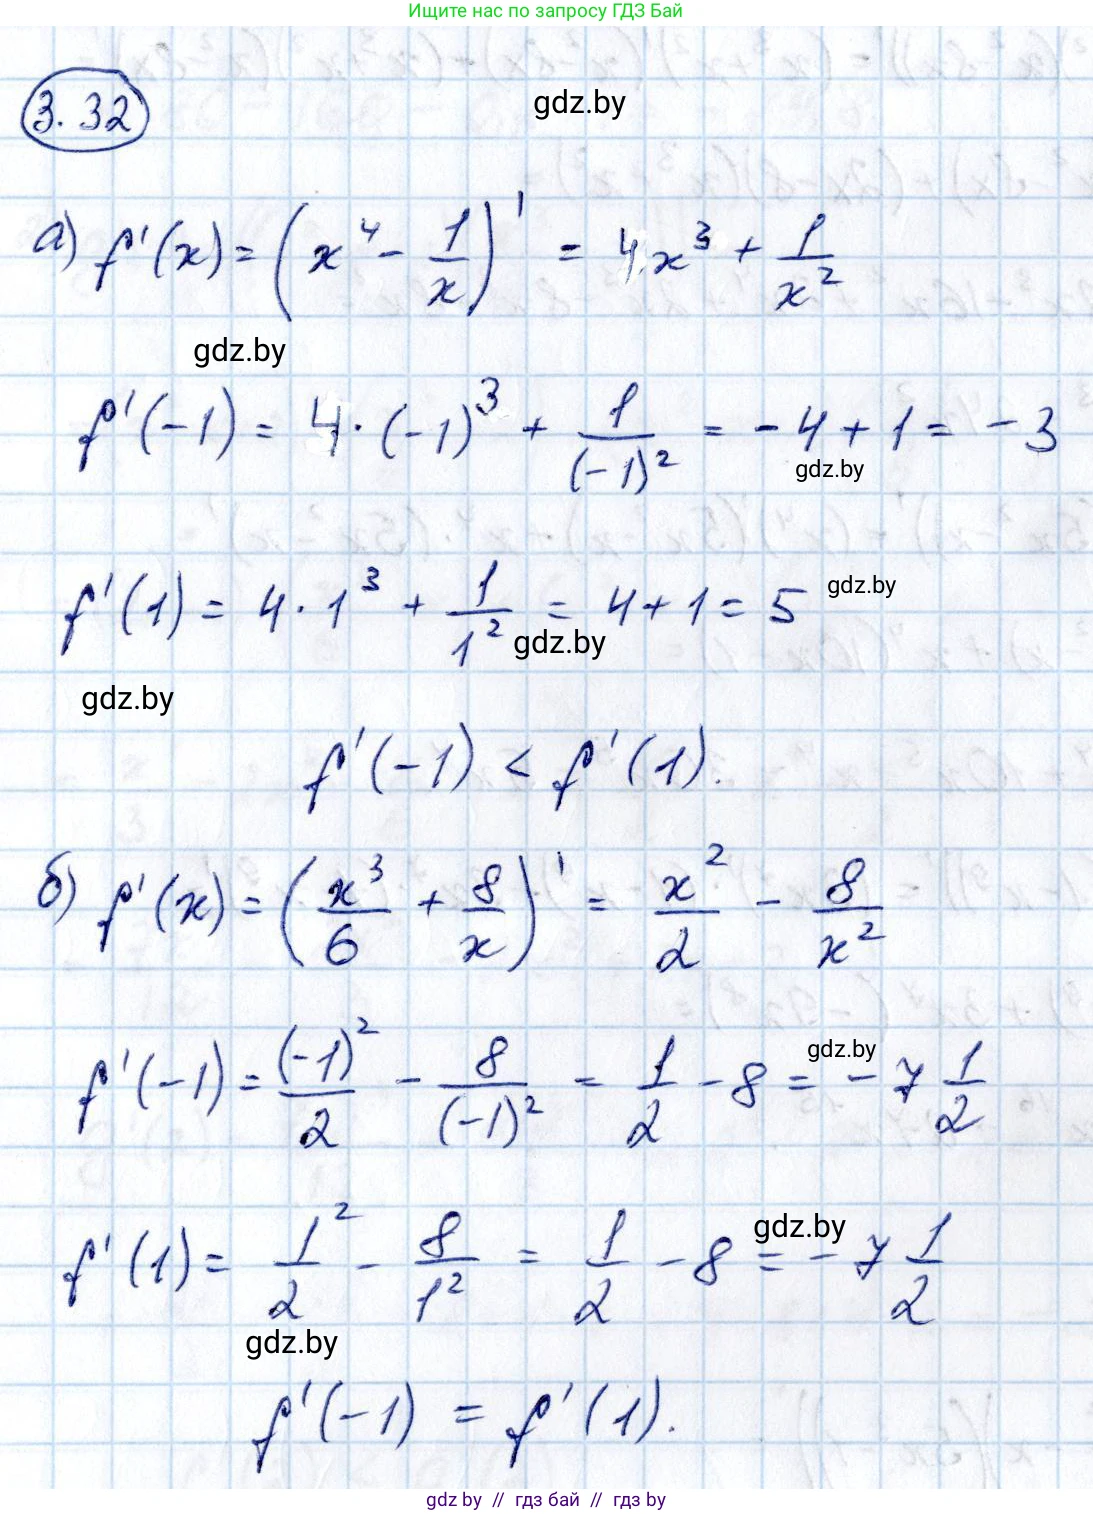 Ищите нас по запросу ГДЗ Бай
3.32
gdz.by
а) f'(x) = (x⁴ - 1/x)' = 4x³ + 1/x²
gdz.by
f'(-1) = 4·(-1)³ + 1/(-1)² = -4 + 1 = -3
gdz.by
f'(1) = 4·1³ + 1/1² = 4 + 1 = 5
gdz.by
gdz.by
gdz.by
f'(-1) < f'(1).
б) f'(x) = (x³/6 + 8/x)' = x²/2 - 8/x²
f'(-1) = (-1)²/2 - 8/(-1)² = 1/2 - 8 = -7 1/2
gdz.by
f'(1) = 1²/2 - 8/1² = 1/2 - 8 = -7 1/2
gdz.by
gdz.by
f'(-1) = f'(1).
gdz by // гдз бай // гдз by